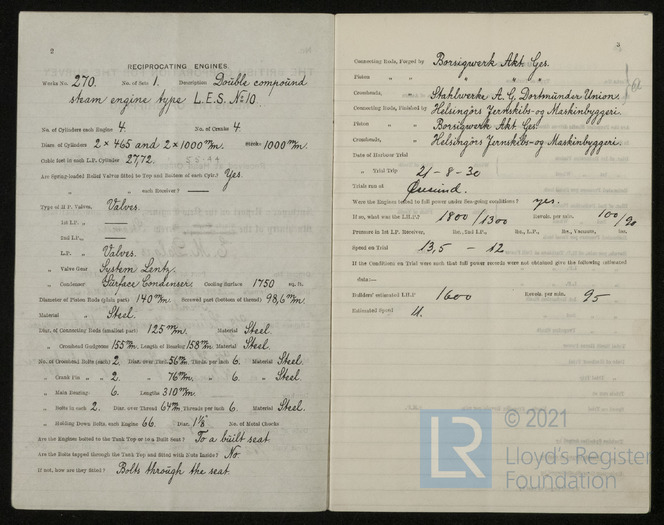 2
RECIPROCATING ENGINES.
Works No. 270. No. of Sets 1. Description Double compound
steam engine type L.E.S. No 10.
No. of Cylinders each Engine 4. No. of Cranks 4.
Diam. of Cylinders 2 x 465 and 2 x 1000 m/m. Stroke 1000 m/m.
Cubic feet in each L.P. Cylinder 27,72. 55.44
Are Spring-loaded Relief Valves fitted to Top and Bottom of each Cylr.? Yes.
„ „ each Receiver? —
Type of H.P. Valves, Valves.
„ 1st I.P. „ —
„ 2nd I.P. „ —
„ L.P. „ Valves.
„ Valve Gear System Lentz.
„ Condenser Surface Condenser Cooling Surface 1750 sq. ft.
Diameter of Piston Rods (plain part) 140 m/m. Screwed part (bottom of thread) 98,6 m/m.
Material „ Steel.
Diar. of Connecting Rods (smallest part) 125 m/m. Material Steel.
„ Crosshead Gudgeons 155 m/m. Length of Bearing 158 m/m. Material Steel.
No. of Crosshead Bolts (each) 2. Diar. over Thrd. 56 m/m. Thrds. per inch 6. Material Steel.
„ Crank Pin „ „ 2. „ 76 m/m. „ 6. „ Steel.
„ Main Bearings 6. Lengths 310 m/m.
„ Bolts in each 2. Diar. over Thread 64 m/m. Threads per inch 6. Material Steel.
„ Holding Down Bolts, each Engine 66. Diar. 1 1/8" No. of Metal Chocks
Are the Engines bolted to the Tank Top or to a Built Seat? To a built seat
Are the Bolts tapped through the Tank Top and fitted with Nuts Inside? No.
If not, how are they fitted? Bolts through the seat.
3
Connecting Rods, Forged by Borsigwerk Akt. Ges.
Piston „ „ „ „ „
Crossheads, „ Stahlwerke A.G. Dortmunder Union.
Connecting Rods, Finished by Helsingörs Jernskibs- og Maskinbyggeri.
Piston „ „ Borsigwerk Akt. Ges.
Crossheads, „ Helsingörs Jernskibs- og Maskinbyggeri.
Date of Harbour Trial
„ Trial Trip 21-8-30
Trials run at Øresund.
Were the Engines tested to full power under Sea-going conditions? yes.
If so, what was the I.H.P.? 1800/1300 Revols. per min. 100/90
Pressure in 1st I.P. Receiver, lbs., 2nd I.P., lbs., L.P., lbs., Vacuum, ins.
Speed on Trial 13,5 - 12
If the Conditions on Trial were such that full power records were not obtained give the following estimated
data:—
Builders' estimated I.H.P. 1600 Revols. per min. 95
Estimated Speed
© 2021
LR
Lloyd's Register
Foundation